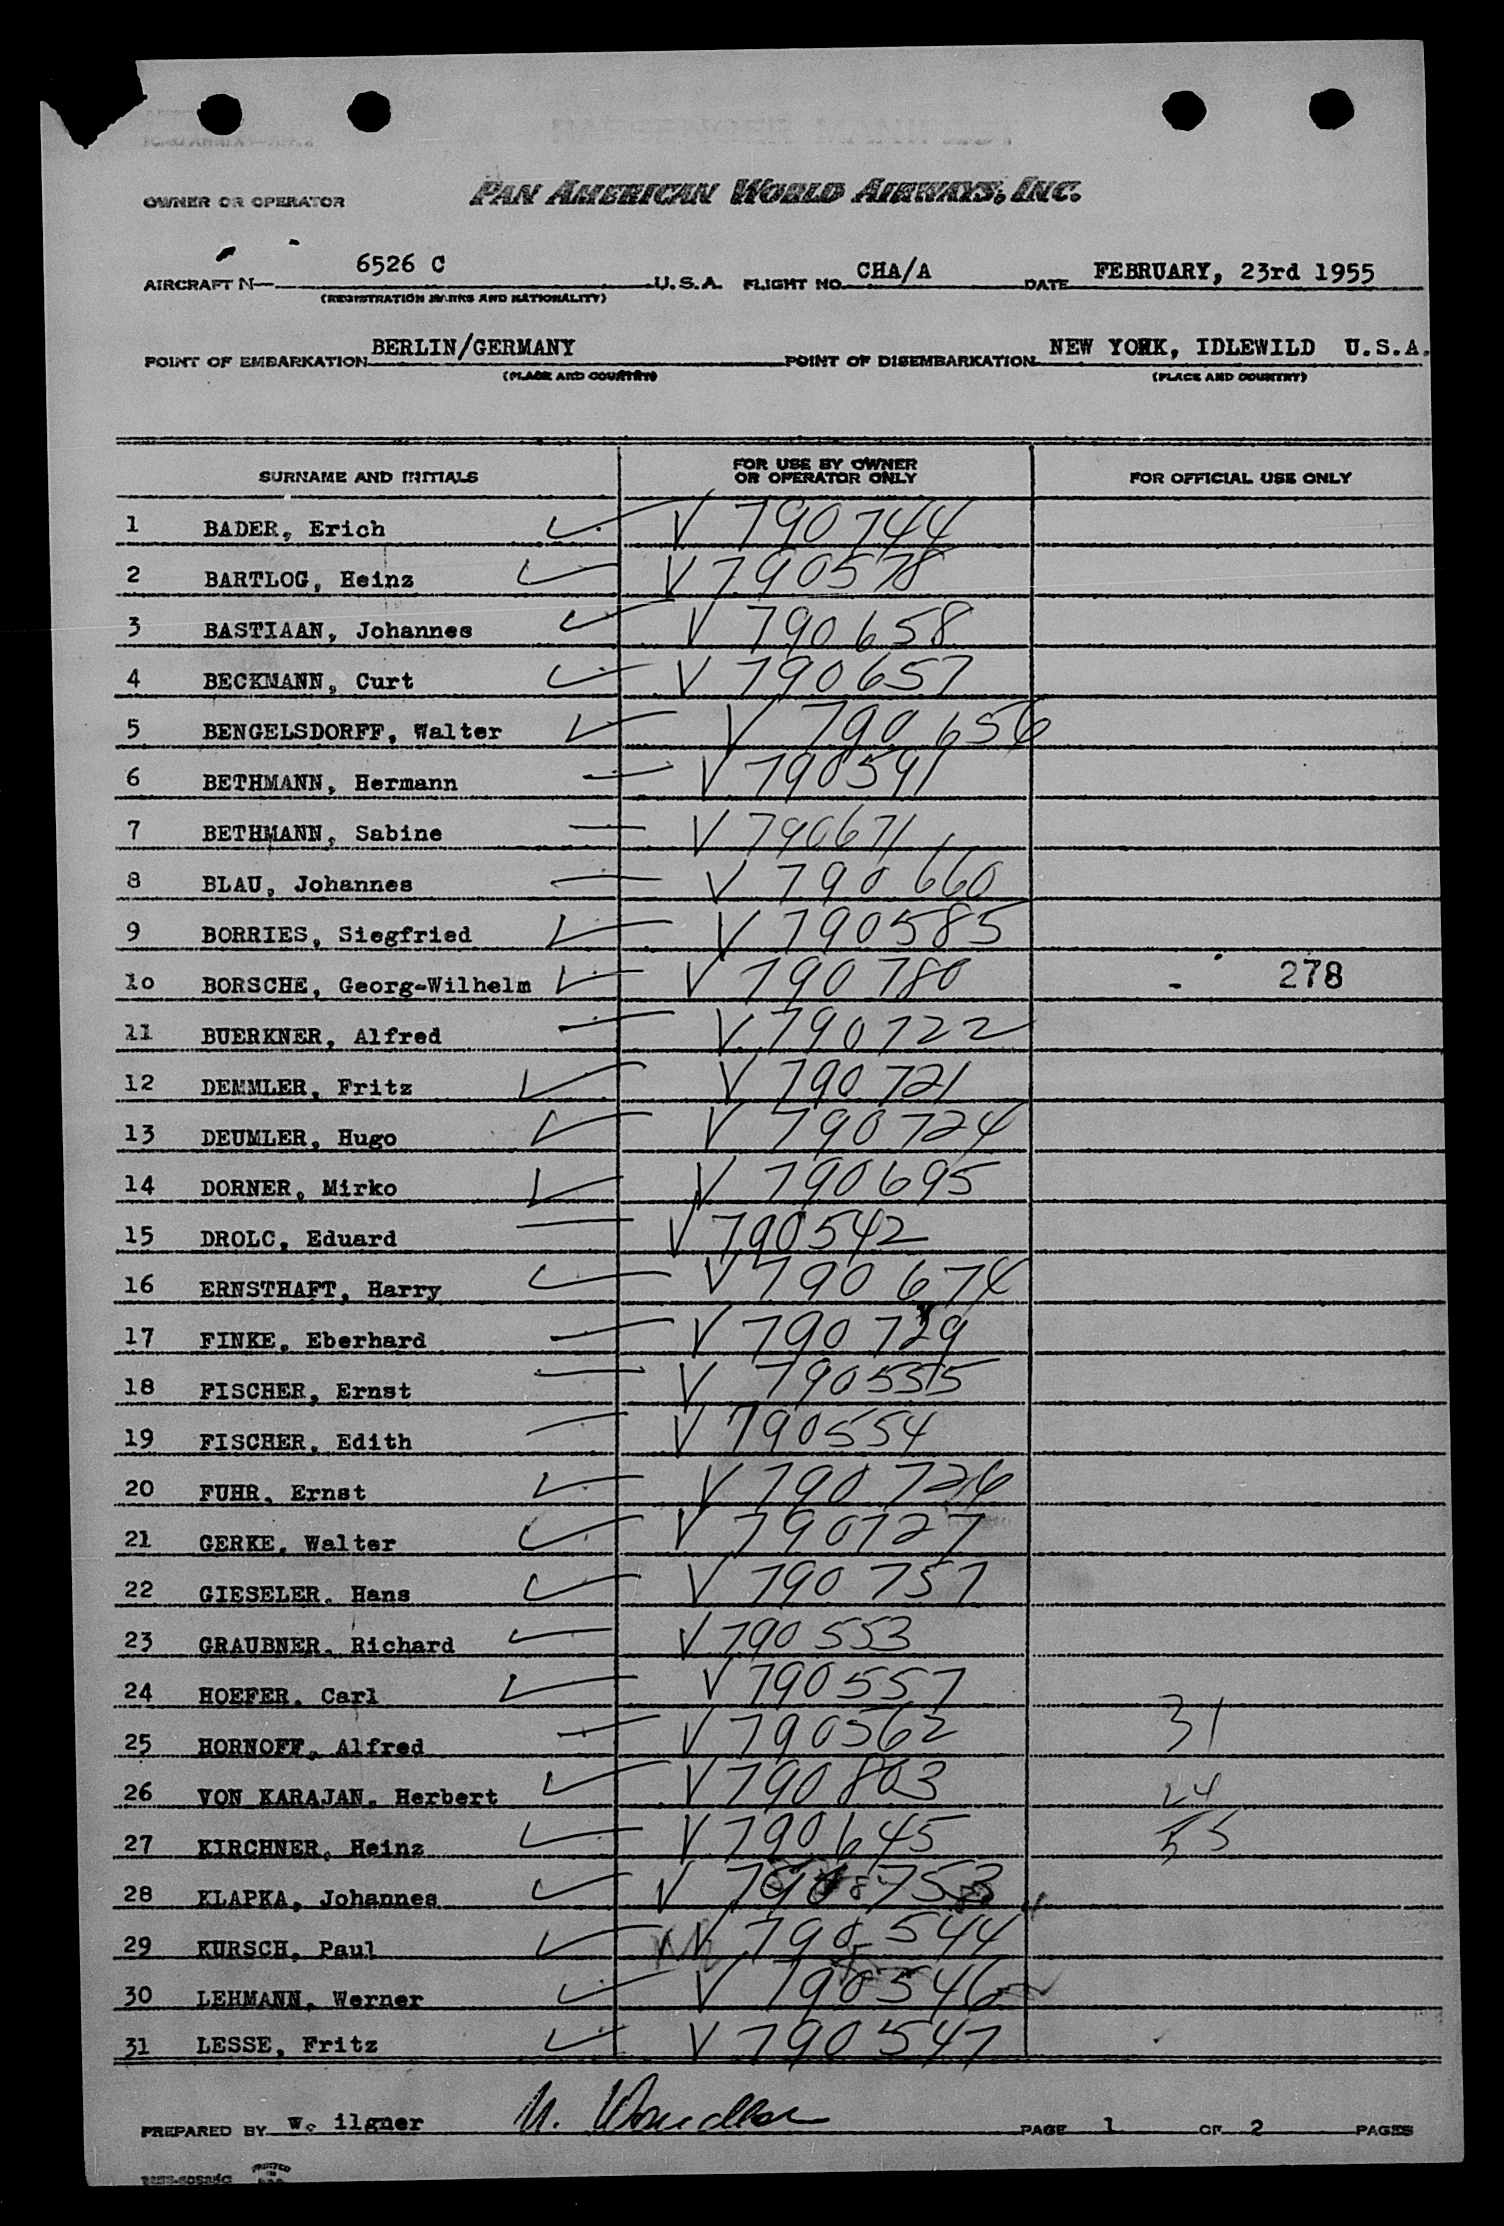 OWNER OR OPERATOR PAN AMERICAN WORLD AIRWAYS, INC.
AIRCRAFT N— 6526 C U.S.A. FLIGHT NO. CHA/A DATE FEBRUARY, 23rd 1955
(REGISTRATION MARKS AND NATIONALITY)
POINT OF EMBARKATION BERLIN/GERMANY POINT OF DISEMBARKATION NEW YORK, IDLEWILD U.S.A.
(PLACE AND COUNTRY) (PLACE AND COUNTRY)
SURNAME AND INITIALS FOR USE BY OWNER OR OPERATOR ONLY FOR OFFICIAL USE ONLY
1 BADER, Erich V 790744
2 BARTLOG, Heinz V 790578
3 BASTIAAN, Johannes V 790658
4 BECKMANN, Curt V 790657
5 BENGELSDORFF, Walter V 790656
6 BETHMANN, Hermann V 790591
7 BETHMANN, Sabine V 790671
8 BLAU, Johannes V 790660
9 BORRIES, Siegfried V 790585
10 BORSCHE, Georg-Wilhelm V 790780 278
11 BUERKNER, Alfred V 790722
12 DEMMLER, Fritz V 790721
13 DEUMLER, Hugo V 790724
14 DORNER, Mirko V 790695
15 DROLC, Eduard V 790542
16 ERNSTHAFT, Harry V 790674
17 FINKE, Eberhard V 790729
18 FISCHER, Ernst V 790555
19 FISCHER, Edith V 790554
20 FUHR, Ernst V 790726
21 GERKE, Walter V 790727
22 GIESELER, Hans V 790757
23 GRAUBNER, Richard V 790553
24 HOEFER, Carl V 790557
25 HORNOFF, Alfred V 790562 31
26 VON KARAJAN, Herbert V 790803 24
27 KIRCHNER, Heinz V 790645 55
28 KLAPKA, Johannes V 790753
29 KURSCH, Paul V 790544
30 LEHMANN, Werner V 790546
31 LESSE, Fritz V 790547
PREPARED BY W. ilgner PAGE 1 OF 2 PAGES